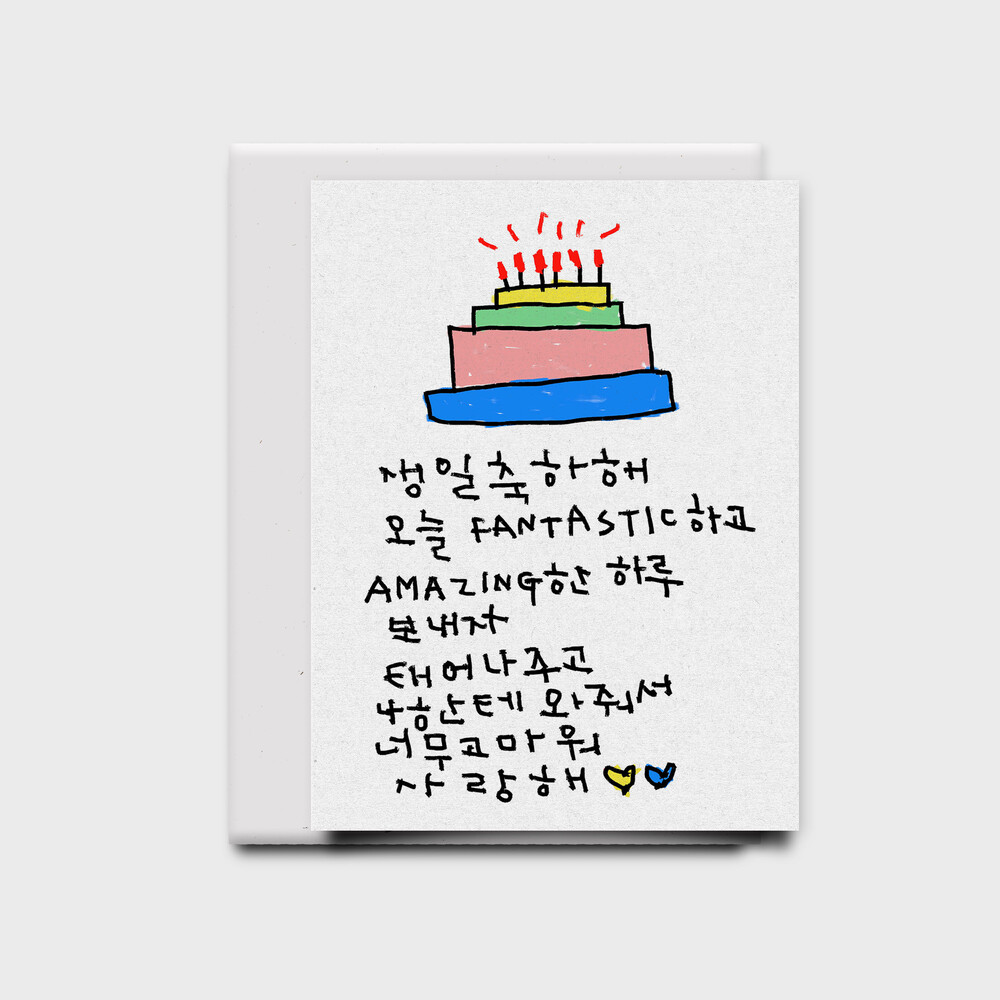 생일축하해
오늘 FANTASTIC하고
AMAZING한 하루
보내자
태어나주고
나한테 와줘서
너무고마워
사랑해